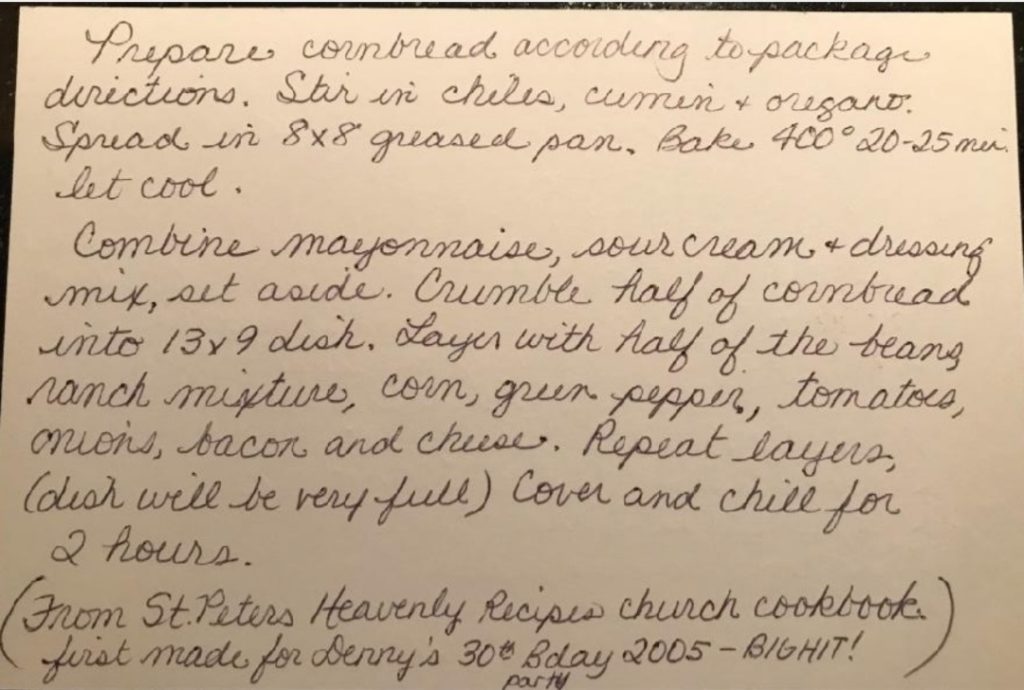 Prepare cornbread according to package
directions. Stir in chiles, cumin + oregano.
Spread in 8x8 greased pan. Bake 400° 20-25 min.
let cool.
Combine mayonnaise, sour cream + dressing
mix, set aside. Crumble half of cornbread
into 13x9 dish. Layer with half of the beans,
ranch mixture, corn, green pepper, tomatoes,
onions, bacon and cheese. Repeat layers,
(dish will be very full) Cover and chill for
2 hours.
(From St. Peters Heavenly Recipes church cookbook.
first made for Denny's 30th Bday 2005 - BIG HIT!)
party